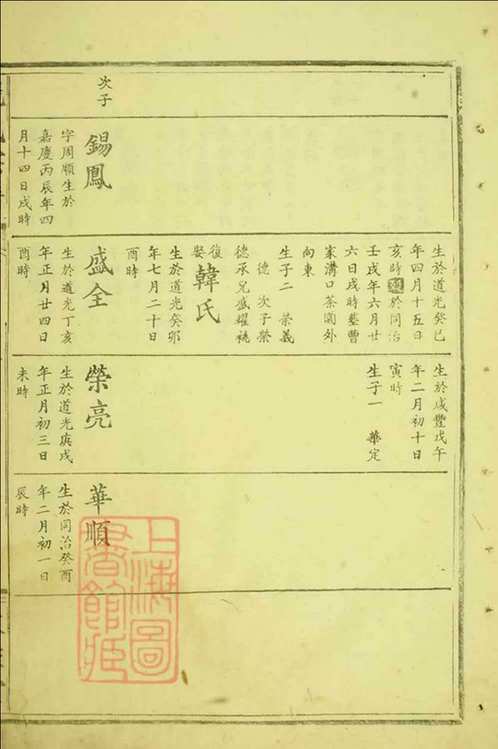 次子
錫鳳
字周順生於
嘉慶丙辰年四
月十四日戌時
生於道光癸巳
年四月十五日
亥時 於同治
壬戌年六月廿
六日戌時葬曹
家溝口茶園外
向東
生子二 榮義
德 次子榮
德承兄盛耀祧
復娶韓氏
生於道光癸卯
年七月二十日
酉時
盛全
生於道光丁亥
年正月廿四日
酉時
生於咸豐戊午
年二月初十日
寅時
生子一 華定
榮亮
生於道光庚戌
年正月初三日
未時
華順
生於同治癸酉
年二月初一日
辰時
上海圖
書館藏